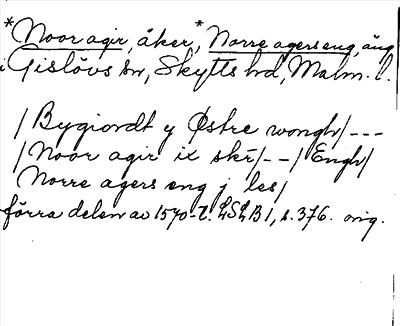 *Noor agir, åker, *Norre agers eng, äng
i Gislövs sn, Skytts hd, Malm. l.
/Bygiordt y Østre wongh/---
/Noor agir ix skr̄/--/Engh/
Norre agers eng j les/
förra delen av 1570-t. LSLB 1, s. 376. orig.